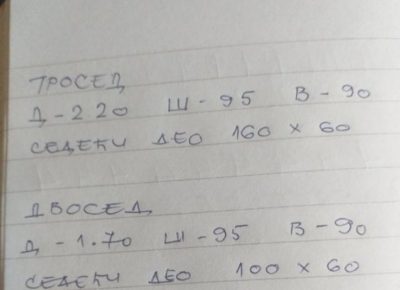 ТРОСЕД
Д - 220 Ш - 95 В - 90
СЕДЕЋИ ДЕО 160 x 60
ДВОСЕД
Д - 1.70 Ш - 95 В - 90
СЕДЕЋИ ДЕО 100 x 60